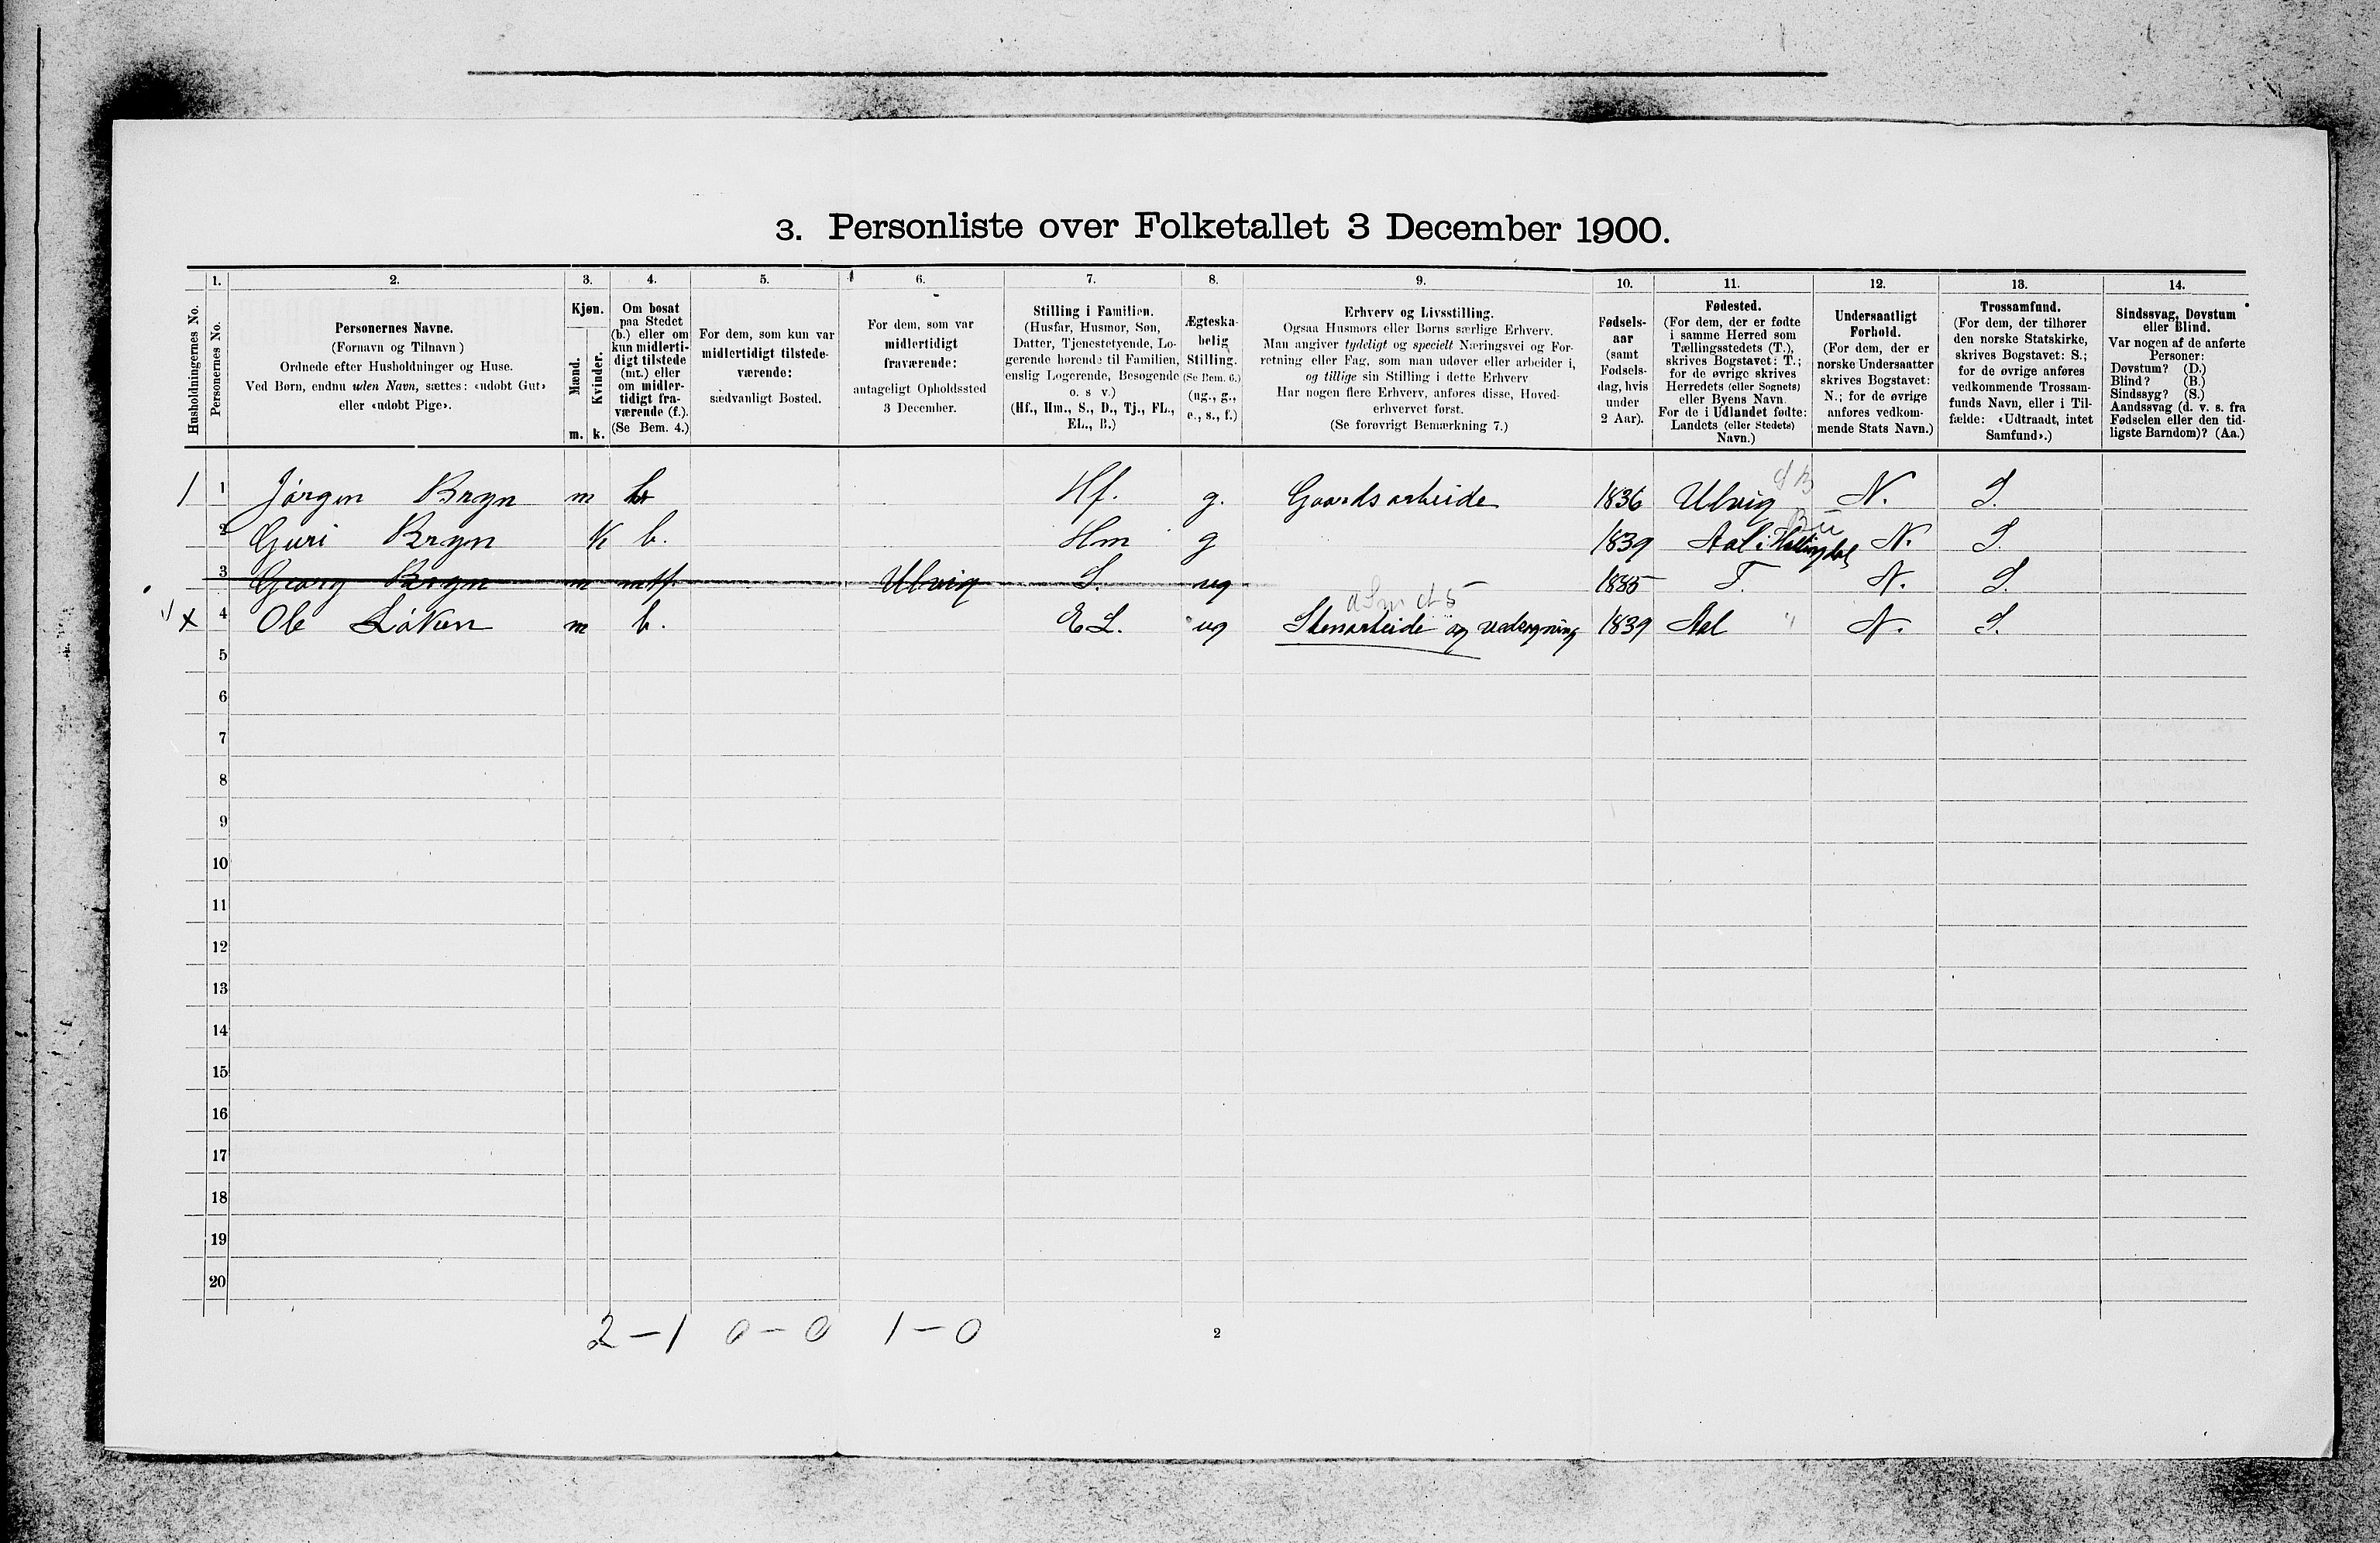 3. Personliste over Folketallet 3 December 1900.
1. 2. 3. 4. 5. 6. 7. 8. 9. 10. 11. 12. 13. 14.
Husholdningernes No.
Personernes No.
Personernes Navne.
(Fornavn og Tilnavn)
Ordnede efter Husholdninger og Huse.
Ved Børn, endnu uden Navn, sættes: «udøbt Gut»
eller «udøbt Pige».
Kjøn.
Mænd.
Kvinder.
m. k.
Om bosat
paa Stedet
(b.) eller om
kun midlerti-
digt tilstede
(mt.) eller
om midler-
tidigt fra-
værende (f.).
(Se Bem. 4.)
For dem, som kun var
midlertidigt tilstede-
værende:
sædvanligt Bosted.
For dem, som var
midlertidigt
fraværende:
antageligt Opholdssted
3 December.
Stilling i Familien.
(Husfar, Husmor, Søn,
Datter, Tjenestetyende, Lo-
gerende hørende til Familien,
enslig Logerende, Besøgende
o. s. v.)
(Hf., Hm., S., D., Tj., FL.,
EL., B.)
Ægteska-
belig
Stilling.
(Se Bem. 6.)
(ug., g.,
e., s., f.)
Erhverv og Livsstilling.
Ogsaa Husmors eller Børns særlige Erhverv.
Man angiver tydeligt og specielt Næringsvei og For-
retning eller Fag, som man udøver eller arbeider i,
og tillige sin Stilling i dette Erhverv
Har nogen flere Erhverv, anføres disse, Hoved-
erhvervet først.
(Se forøvrigt Bemærkning 7.)
Fødsels-
aar
(samt
Fødsels-
dag, hvis
under
2 Aar).
Fødested.
(For dem, der er fødte
i samme Herred som
Tællingsstedets (T.),
skrives Bogstavet: T.;
for de øvrige skrives
Herredets (eller Sognets)
eller Byens Navn.
For de i Udlandet fødte:
Landets (eller Stedets)
Navn.)
Undersaatligt
Forhold.
(For dem, der er
norske Undersaatter
skrives Bogstavet:
N.; for de øvrige
anføres vedkom-
mende Stats Navn.)
Trossamfund.
(For dem, der tilhører
den norske Statskirke,
skrives Bogstavet: S.;
for de øvrige anføres
vedkommende Trossam-
funds Navn, eller i Til-
fælde: «Udtraadt, intet
Samfund».)
Sindssvag, Døvstum
eller Blind.
Var nogen af de anførte
Personer:
Døvstum? (D.)
Blind? (B.)
Sindssyg? (S.)
Aandssvag (d. v. s. fra
Fødselen eller den tid-
ligste Barndom)? (Aa.)
1 1 Jørgen Bryn m b Hf. g. Gaardsarbeide 1836 Ulvig SB N. S.
2 Guri Bryn K b. Hm g 1839 Aal i Hallingdal Bu N. S.
3 Georg Bryn m mtf. Ulvig S. ug – 1885 T. N. S.
x 4 Ole Løken m b. EL. ug Stenarbeide og vedsagning 1839 Aal " N. S.
5
6
7
8
9
10
11
12
13
14
15
16
17
18
19
20
2 – 1 0 – 0 1 – 0
2